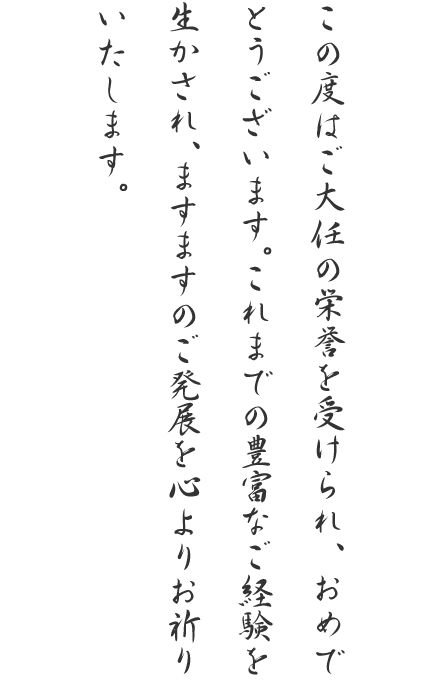 この度はご大任の栄誉を受けられ、おめで
とうございます。これまでの豊富なご経験を
生かされ、ますますのご発展を心よりお祈り
いたします。